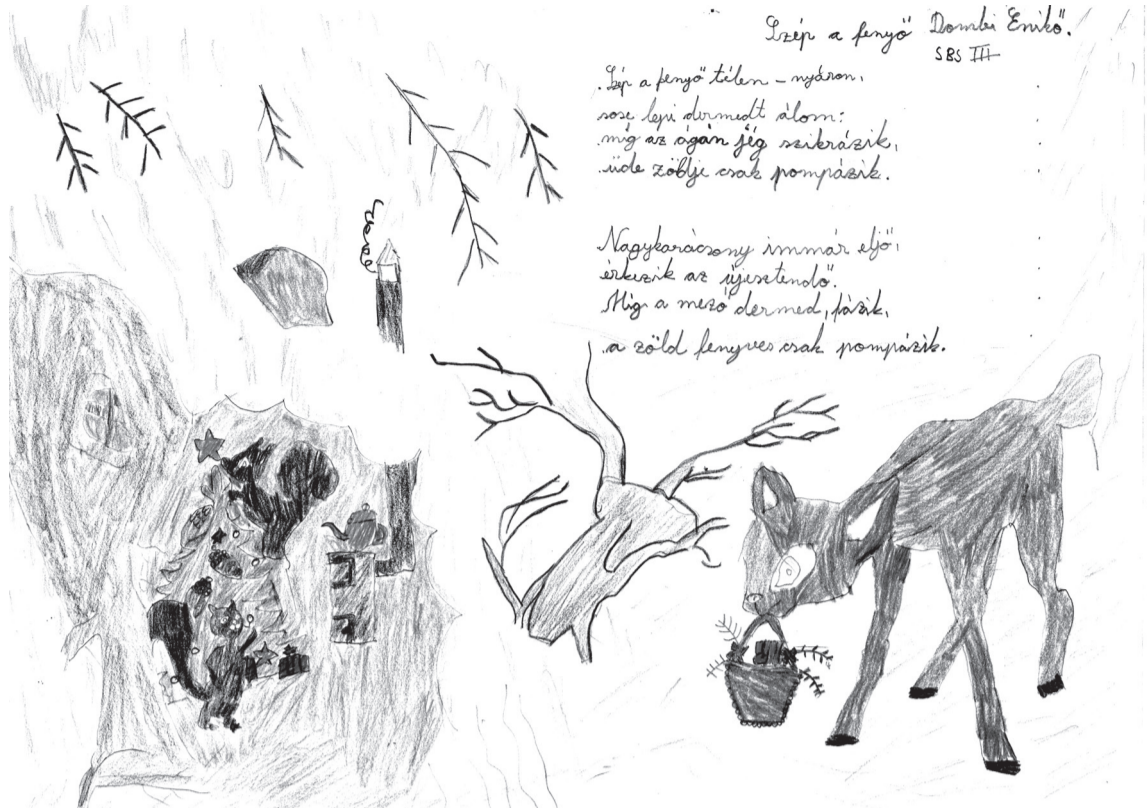 Szép a fenyő Dombi Enikő.
SBS III
Szép a fenyő télen – nyáron,
sose lepi dermedt álom:
míg az ágán jég szikrázik,
üde zöldje csak pompázik.
Nagykarácsony immár eljő,
érkezik az újesztendő.
Míg a mező dermed, fázik,
a zöld fenyves csak pompázik.